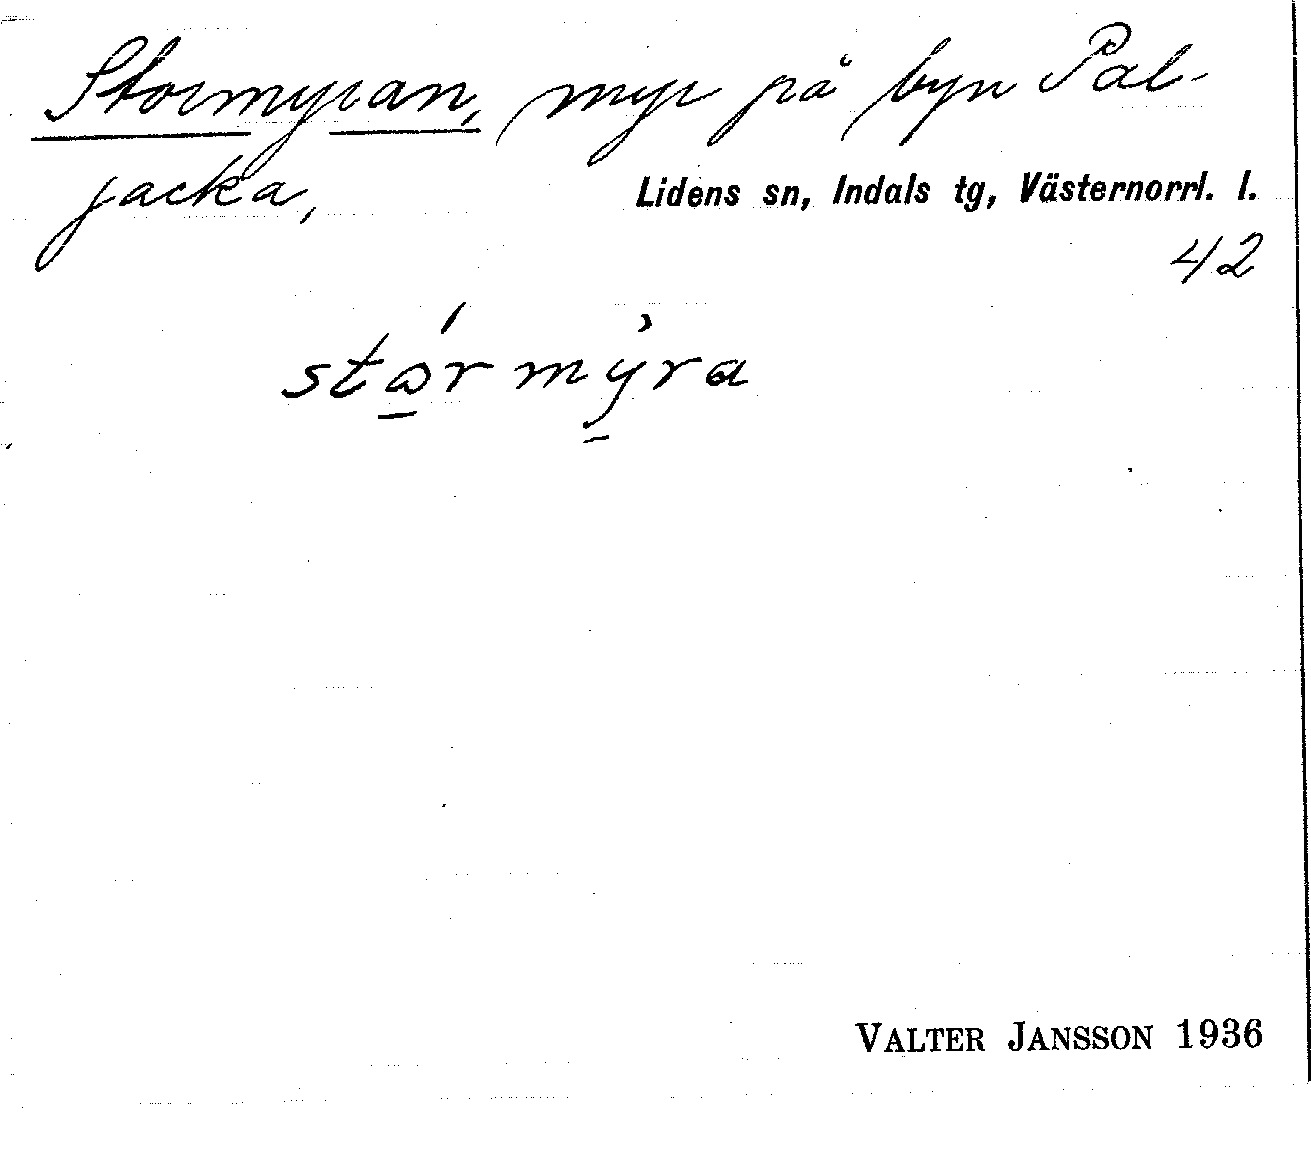 Stormyran, myr på byn Pal-
jacka,
Lidens sn, Indals tg, Västernorrl. l.
42
stώ̱rmỳ̱ra
VALTER JANSSON 1936